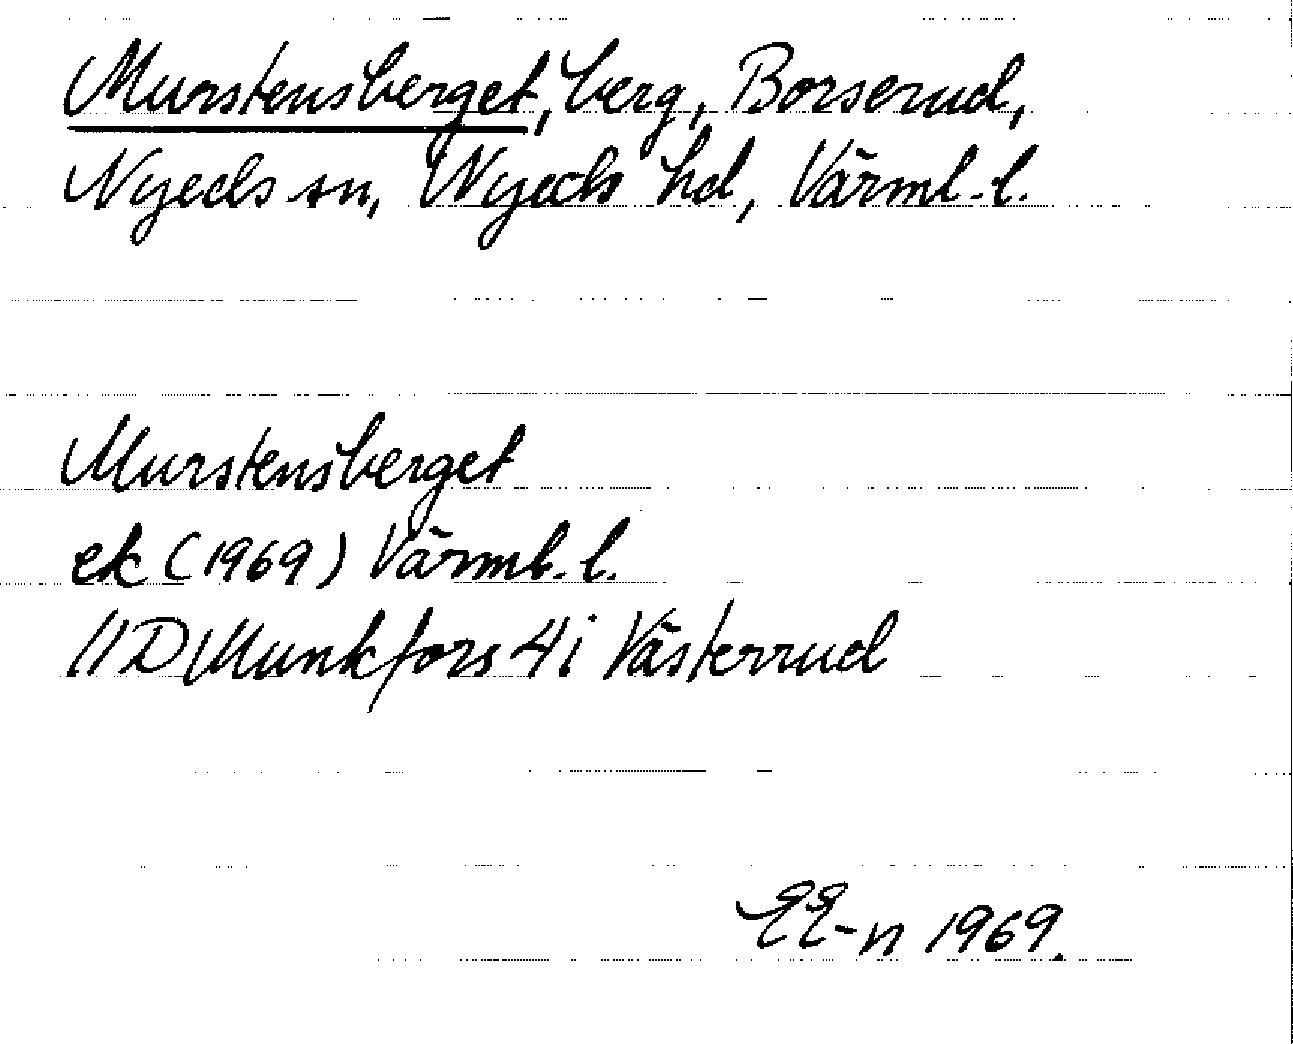 Murstensberget, berg, Borserud,
Nyeds sn, Nyeds hd, Värml. l.
Murstensberget
ek (1969) Värml. l.
11D Munkfors 4i Västerrud
EE-n 1969.